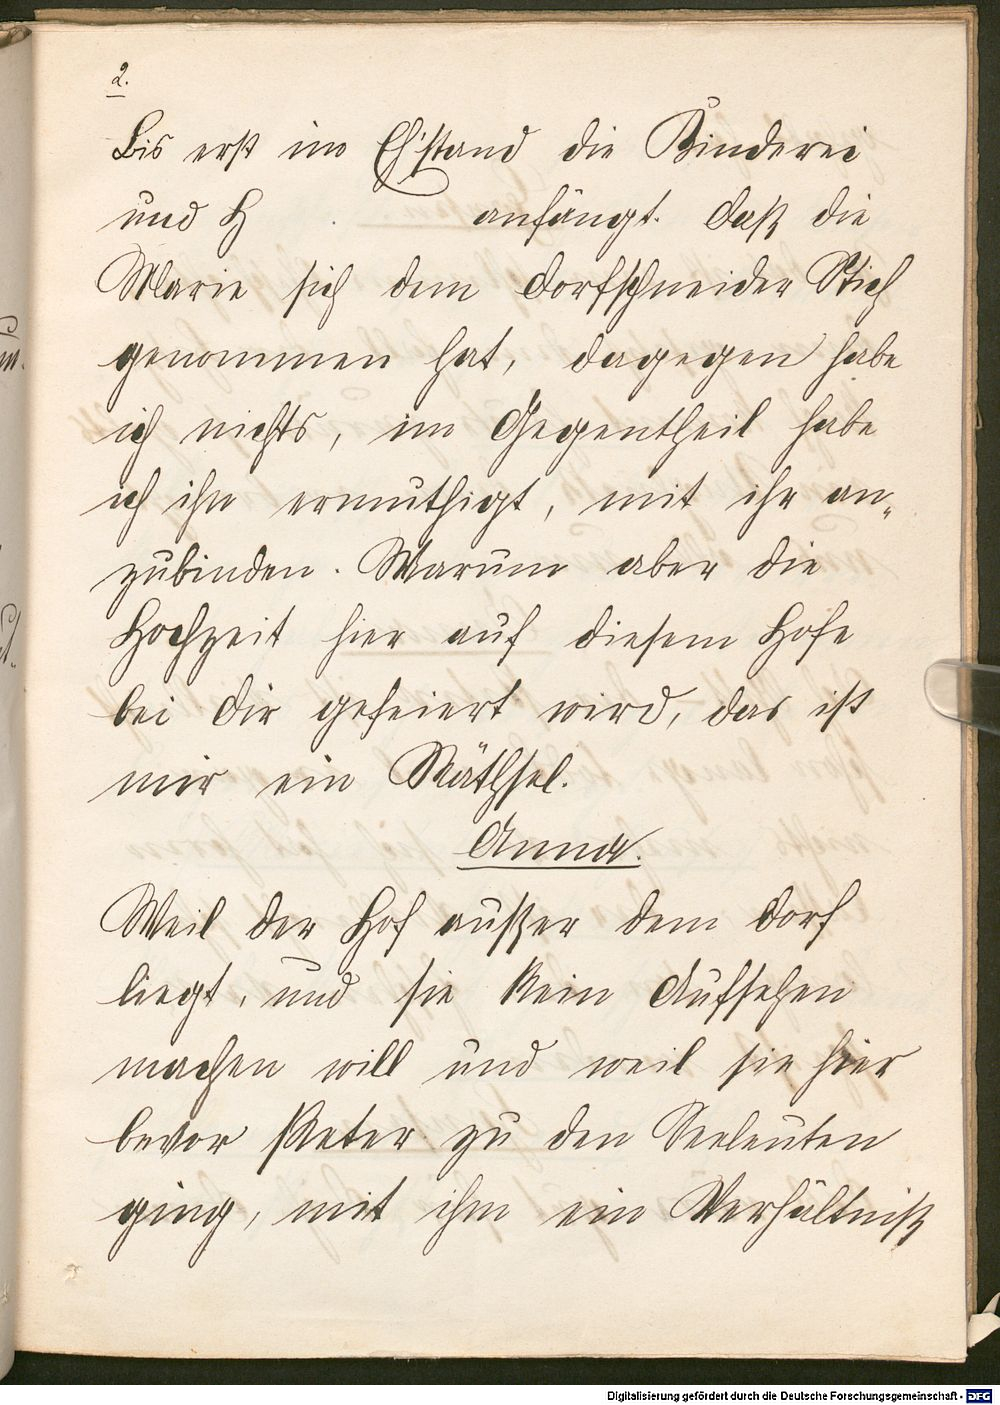 2.
Bis erst im Eh'stand die Kinderei
und H anfängt. Daß die
Marie sich dem Dorfschneider Stich
genommen hat, dagegen habe
ich nichts, im Gegentheil habe
ich ihn ermuthigt, mit ihr an„
zubinden. Warum aber die
Hochzeit hier auf diesem Hofe
bei dir gefeiert wird, das ist
mir ein Räthsel.
Anna.
Weil der Hof außer dem Dorf
liegt, und sie kein Aufsehen
machen will und weil sie hier
bevor Peter zu den Seeleuten
ging, mit ihm ein Verhältniß
Digitalisierung gefördert durch die Deutsche Forschungsgemeinschaft - DFG